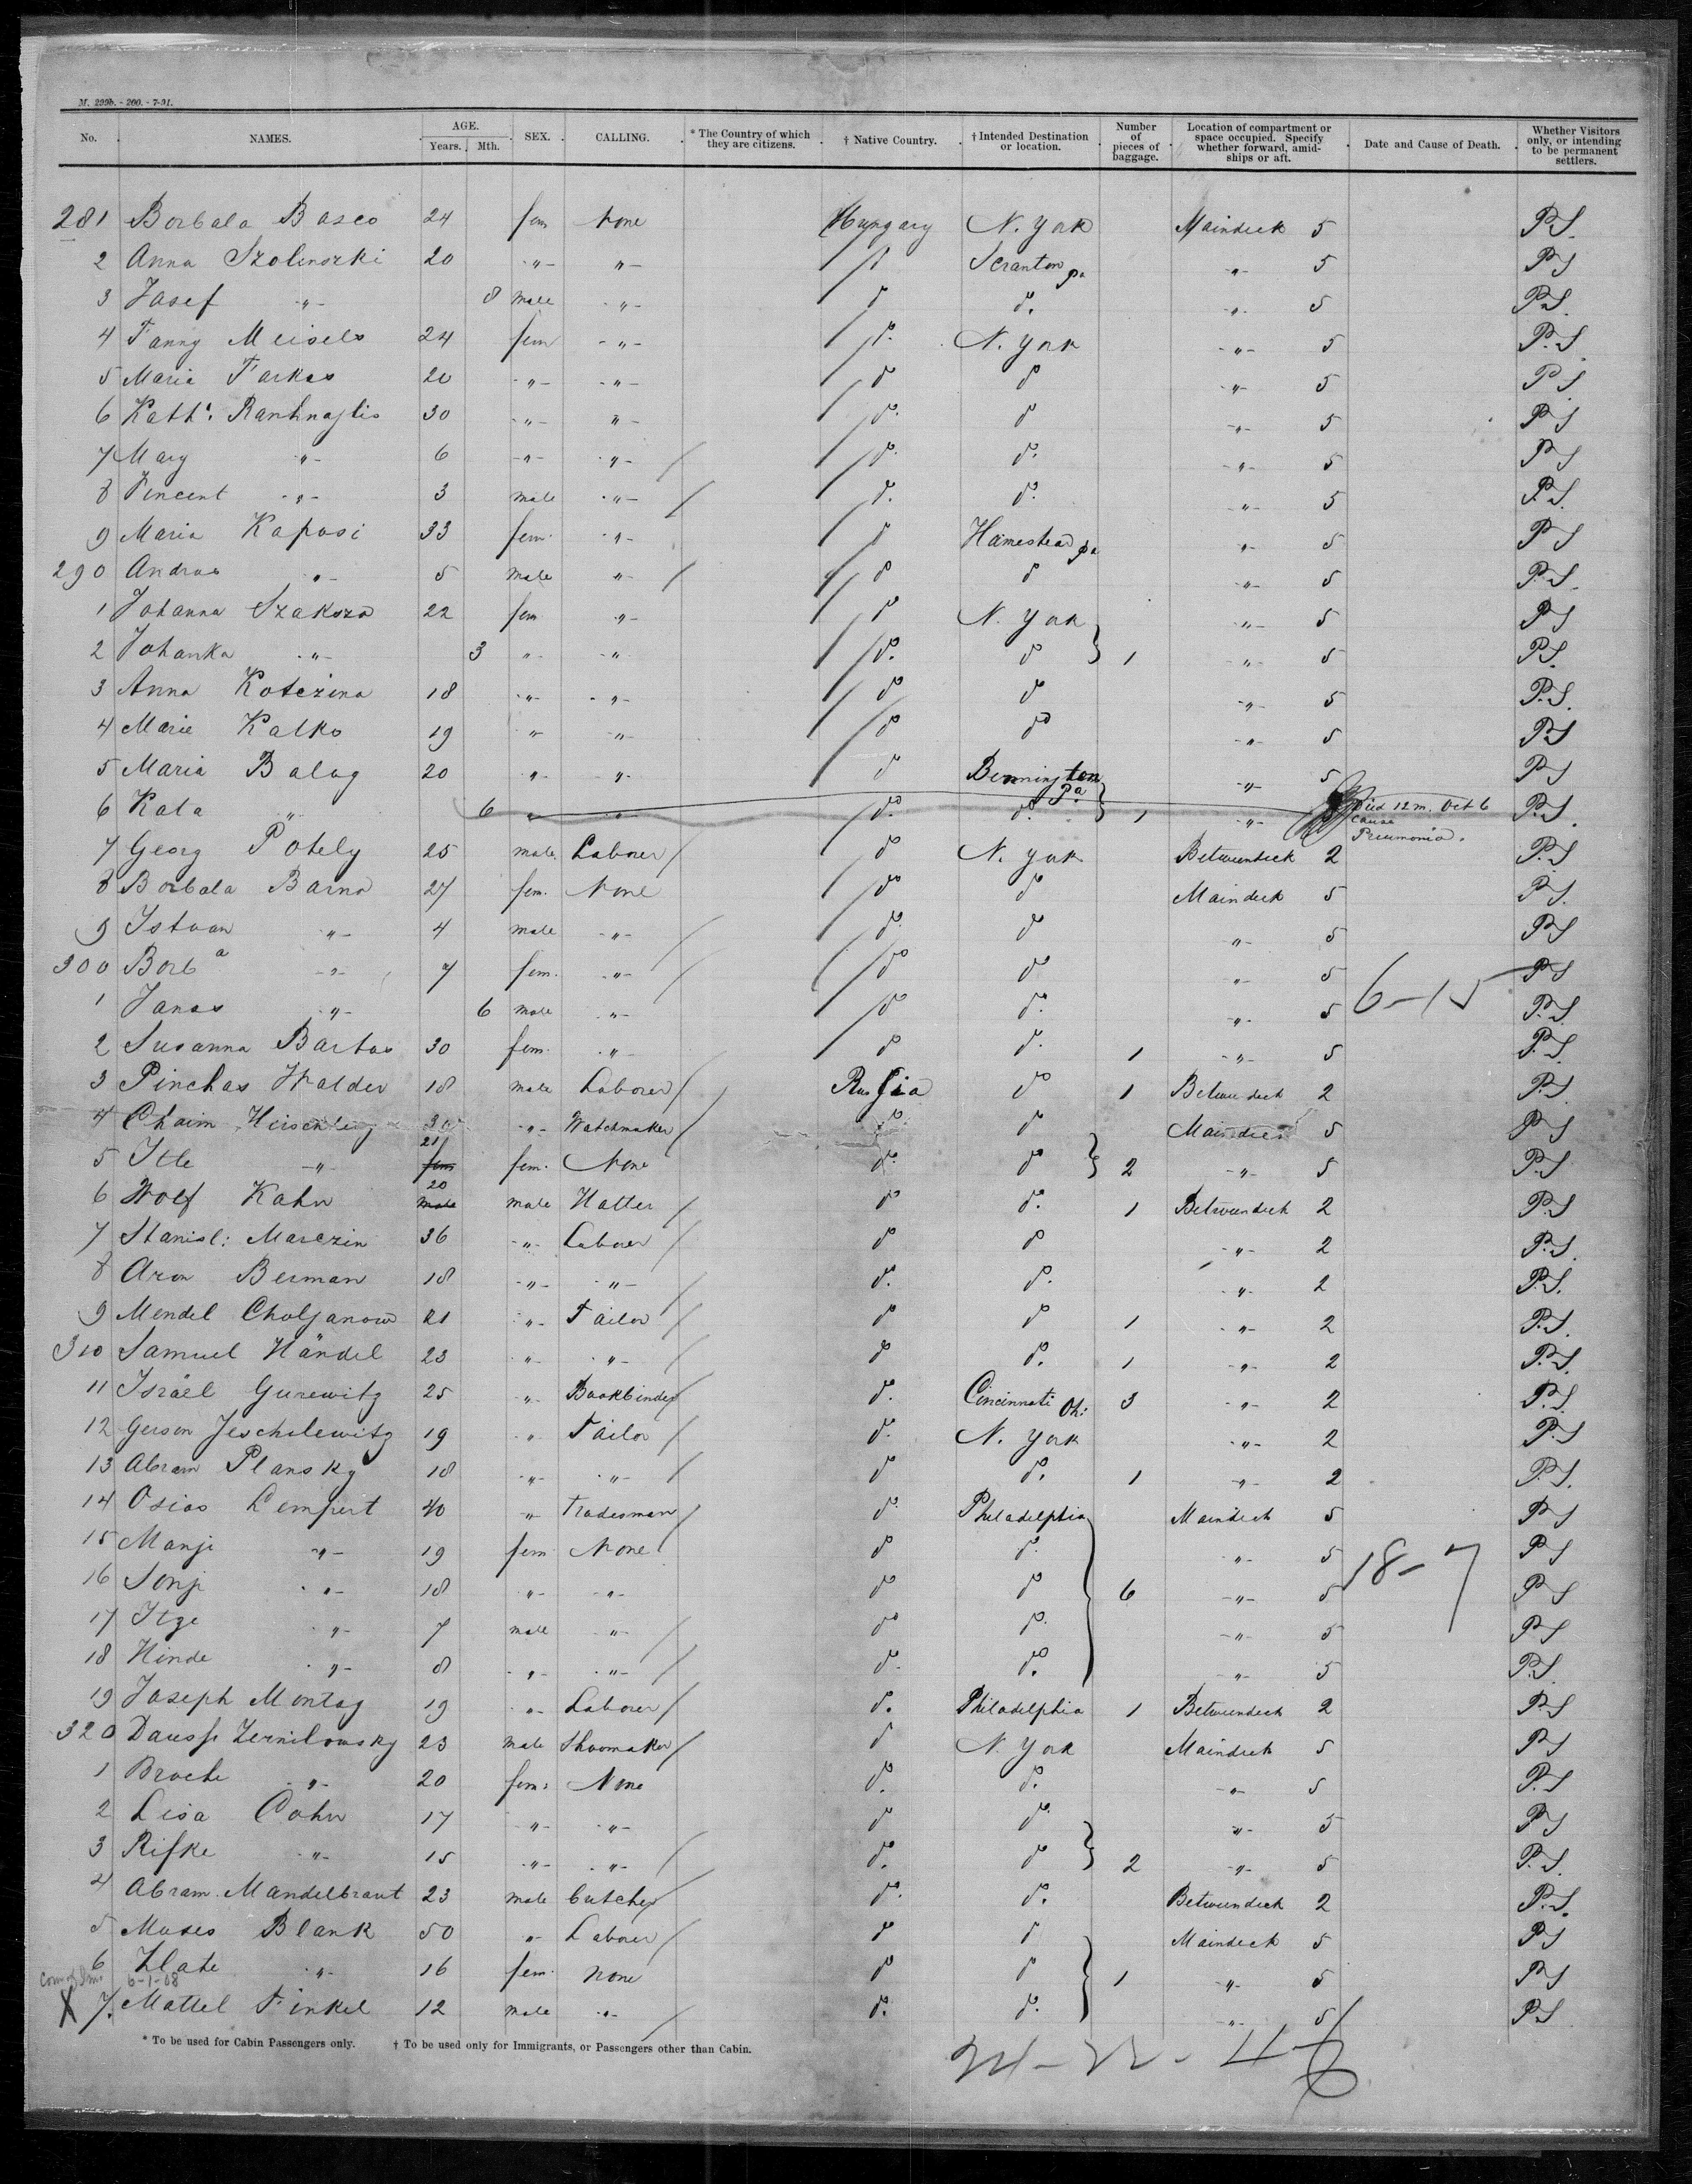 M. 299b. - 200. - 7-91.
No. NAMES. AGE. Years. Mth. SEX. CALLING. * The Country of which they are citizens. † Native Country. † Intended Destination or location. Number of pieces of baggage. Location of compartment or space occupied. Specify whether forward, amidships or aft. Date and Cause of Death. Whether Visitors only, or intending to be permanent settlers.
281 Borbala Basco 24 fem None Hungary N. York Maindeck 5 P.S.
2 Anna Szolinszki 20 -"- -"- d Scranton Pa -"- 5 P.S
3 Josef -"- 8 male -"- d d. -"- 5 P.S.
4 Fanny Meisels 24 fem -"- d. N. York -"- 5 P.S.
5 Maria Farkas 20 -"- -"- d d -"- 5 P.S
6 Kath. 30 -"- -"- d. d -"- 5 P.S
7 Mary -"- 6 -"- -"- d. d. -"- 5 P.S
8 Vincent -"- 3 male -"- d. d. -"- 5 P.S.
9 Maria Kaposi 33 fem. -"- d Homestead Pa -"- 5 P.S
290 Andras -"- 5 male -"- d d -"- 5 P.S.
1 Johanna Szaksza 22 fem -"- d N. York -"- 5 P.S
2 Johanka -"- 3 -"- -"- d. d 1 -"- 5 P.S.
3 Anna Kotezina 18 -"- -"- d d -"- 5 P.S.
4 Marie Kalko 19 -"- -"- d d -"- 5 P.S
5 Maria Balog 20 -"- -"- d Bennington Pa. -"- 5 P.S
6 Kata -"- 6 -"- -"- d. d. 1 -"- Died 12 m. Oct 6 cause Pneumonia. P.S.
7 Georg Potely 25 male Laborer d N. York Betweendeck 2 P.S
8 Borbala Barna 27 fem. None d d Maindeck 5 P.S.
9 Istvan -"- 4 male -"- d. d -"- 5 P.S
300 Borba -"- 7 fem. -"- d d -"- 5 6-15 P.S
1 Janos -"- 6 male -"- d d. -"- 5 P.S.
2 Susanna Bartos 30 fem. -"- d d. 1 -"- 5 P.S.
3 Pinchas Walder 18 male Laborer Russia d 1 Betweendeck 2 P.S
4 Chaim 30 -"- Watchmaker d. d Maindeck 5 P.S
5 Itle -"- 21 fem fem. None d. d 2 -"- 5 P.S
6 Wolf Kahn 20 male male Hatter d d. 1 Betweendeck 2 P.S
7 Stanisl: Marczin 36 -"- Laborer d d -"- 2 P.S.
8 Aron Berman 18 -"- -"- d. d. -"- 2 P.S.
9 Mendel Choljanow 21 -"- Tailor d d 1 -"- 2 P.S.
310 Samuel Händel 23 -"- -"- d d. 1 -"- 2 P.S.
11 Israel Gurewitz 25 -"- Bookbinder d. Cincinnati Oh: 3 -"- 2 P.S.
12 Gerson Jeschelewitz 19 -"- Tailor d. N. York -"- 2 P.S
13 Abram Plansky 18 -"- -"- d d. 1 -"- 2 P.S.
14 Osias Lempert 40 -"- Tradesman d. Philadelphia Maindeck 5 P.S
15 Manji -"- 19 fem None d d. -"- 5 P.S
16 Sonji -"- 18 -"- -"- d d 6 -"- 5 18-7 P.S
17 Itze -"- 7 male -"- d d. -"- 5 P.S
18 Hinde -"- 8 -"- -"- d. d. -"- 5 P.S.
19 Joseph Montag 19 -"- Laborer d. Philadelphia 1 Betweendeck 2 P.S
320 Zernilowsky 23 male Shoemaker d N. York Maindeck 5 P.S
1 Broche -"- 20 fem: None d. d. -"- 5 P.S
2 Lisa Cohn 17 -"- -"- d d. -"- 5 P.S
3 Rifke -"- 15 -"- -"- d. d 2 -"- 5 P.S.
4 Abram. Mandelbraut 23 male butcher d. d. Betweendeck 2 P.S.
5 Moses Blank 50 -"- Laborer d d Maindeck 5 P.S
6 Zlate -"- 16 fem. None d d 1 -"- 5 P.S
6-1-08
X 7. Mottel Finkel 12 male -"- d. d. -"- 5 P.S
* To be used for Cabin Passengers only. † To be used only for Immigrants, or Passengers other than Cabin.